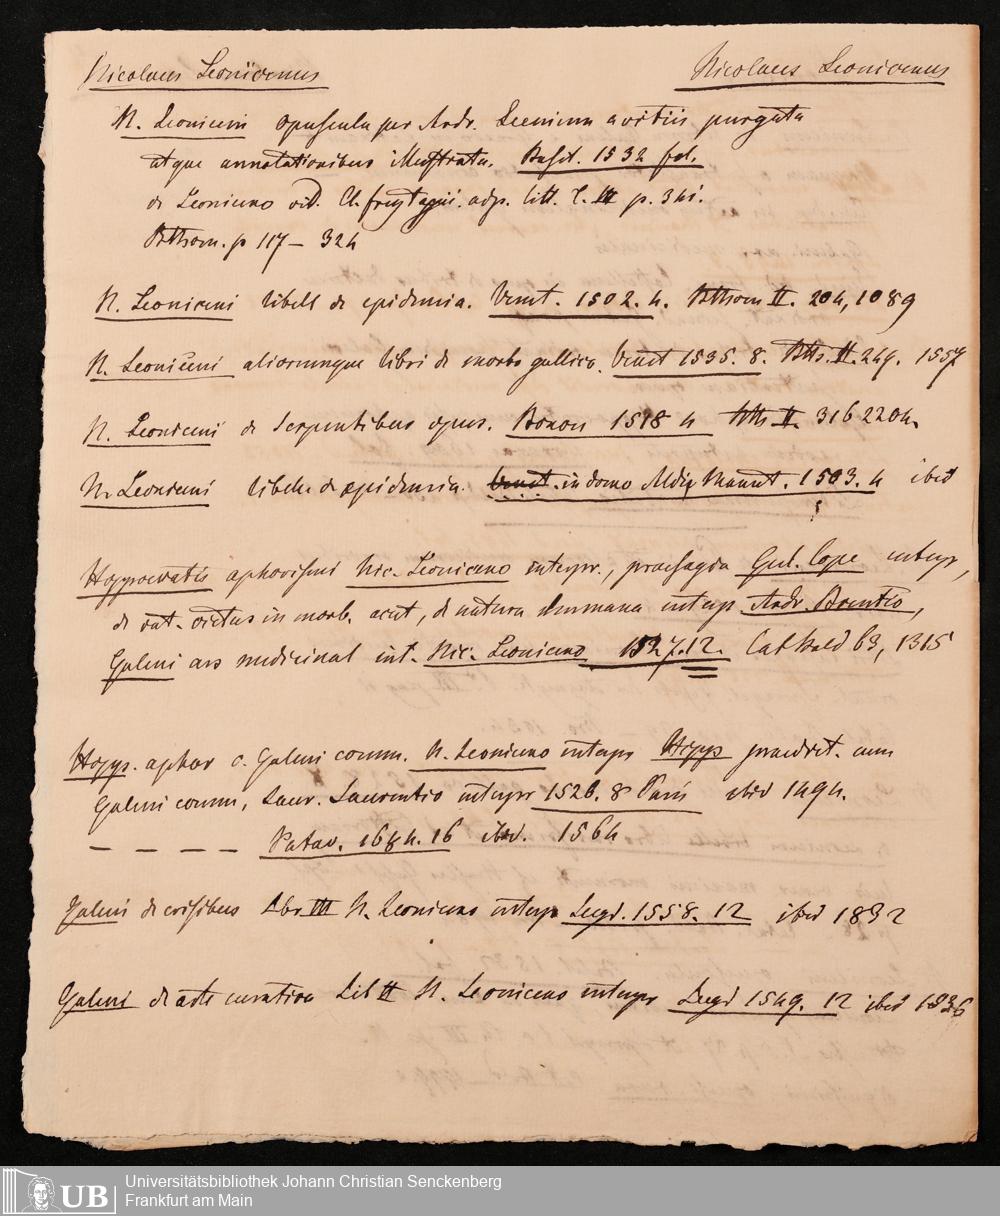 Nicolaus Leonicenus Nicolaus Leonicenus
N. Leoniceni opuscula per Andr. Leenium a vitiis purgata
atque annotationibus illustrata. Basil. 1532 fol.
de Leoniceno vid. Cl. freytagii. adp. litt. T. III p. 341.
Bthom. p 117 – 324
N. Leoniceni libell de epidemia. Venet. 1502. 4. Bthom II. 204, 1089
N. Leoniceni aliorumque libri de morbo gallico. Venet 1535. 8. Bth. II. 249. 1557
N. Leoniceni de Serpentibus opus. Bonon 1518 4 bth II. 316 2204.
N. Leoniceni libell. d epidemia. Venet. in domo Aldi Manut. 1503. 4 ibid
Hyppocratis aphorismi Nic. Leoniceno interpr., praesagia Gul. Cope interpr,
de rat. victus in morb. acut, de natura humana interp Andr. Brentio,
Galeni ars medicinal int. Nic. Leoniceno 1527. 12. Cat Bald 63, 1315
Hypp. aphor c. Galeni comm. N. Leoniceno interpr Hipp praedict. cum
Galeni comm, Laur. Laurentio interpr 1526. 8 Paris ibid 1494.
– – – – Patav. 1684. 16 ibid. 1564
Galeni de crisibus Libr III N. Leoniceno interpr Lugd. 1558. 12 ibid 1832
Galeni de arte curativa Lib II N. Leoniceno interpr Lugd 1549. 12 ibid 1836
UB Universitätsbibliothek Johann Christian Senckenberg
Frankfurt am Main